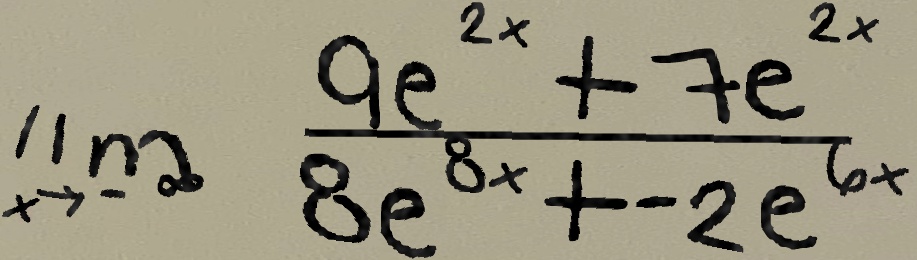 lim x→-∞ \frac{9e^{2x} + 7e^{2x}}{8e^{8x} + -2e^{6x}}